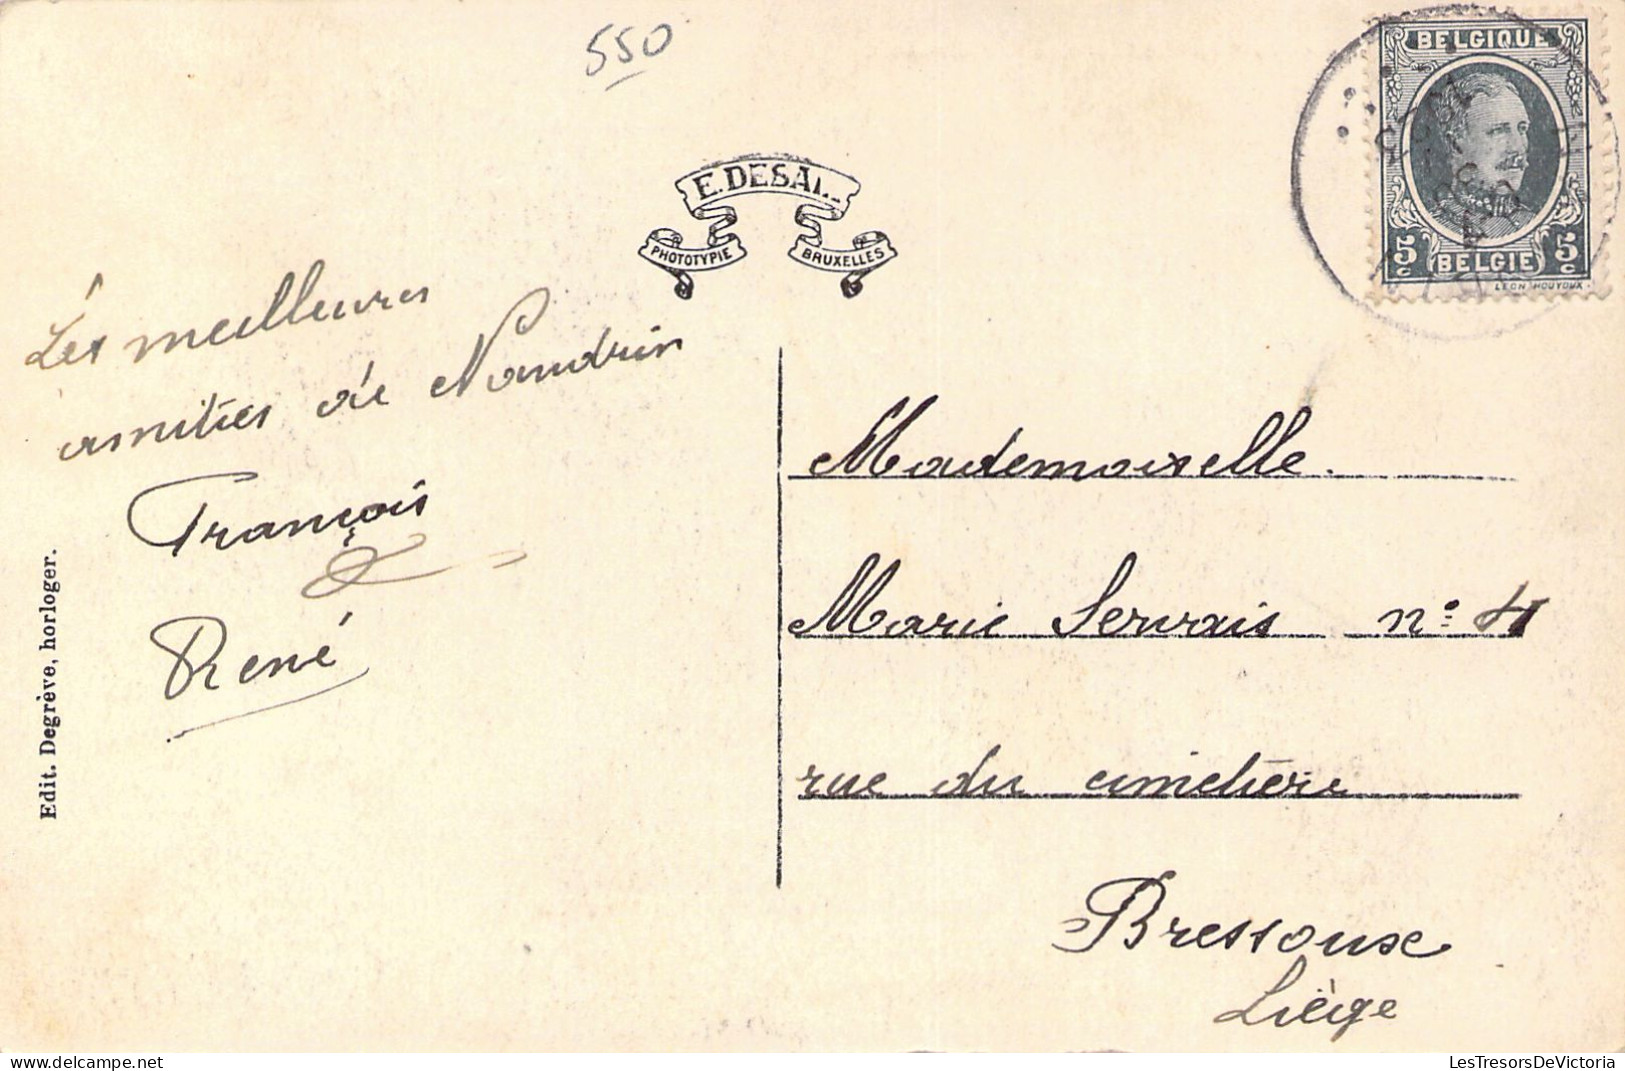 550
BELGIQUE
5c 5c
BELGIE
LEON HOUYOUX
E. DESAI..
PHOTOTYPIE BRUXELLES
Les meilleures
amitiés de Nandrin
François
&
René
Edit. Degrève, horloger.
Mademoiselle.
Marie Servais n°
rue du cimetière
Bressoux
Liège
LesTresorsDeVictoria